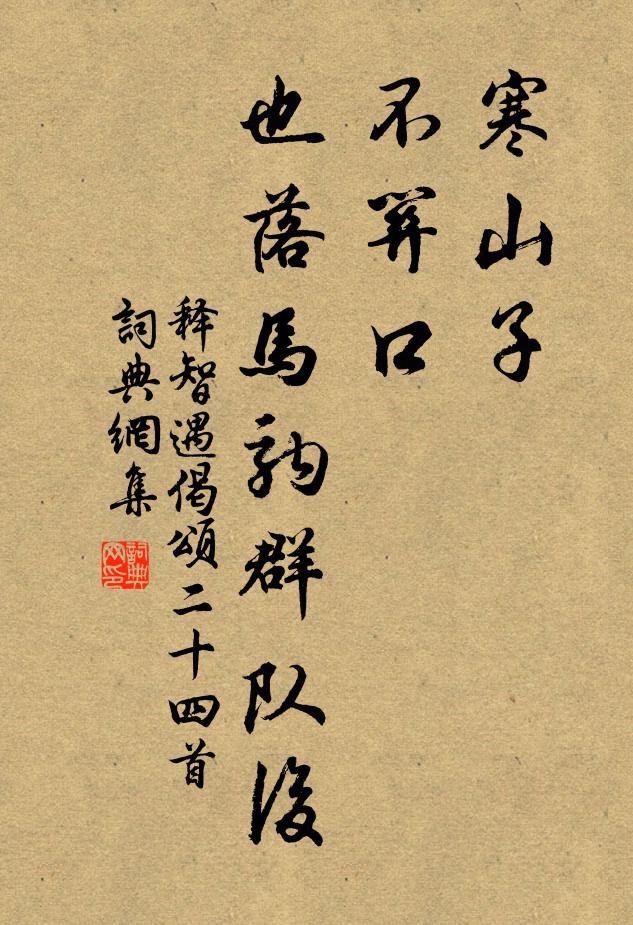 寒山子
不開口
也落馬駒群队後
释智遇偈頌二十四首
詞典網集
詞典网印